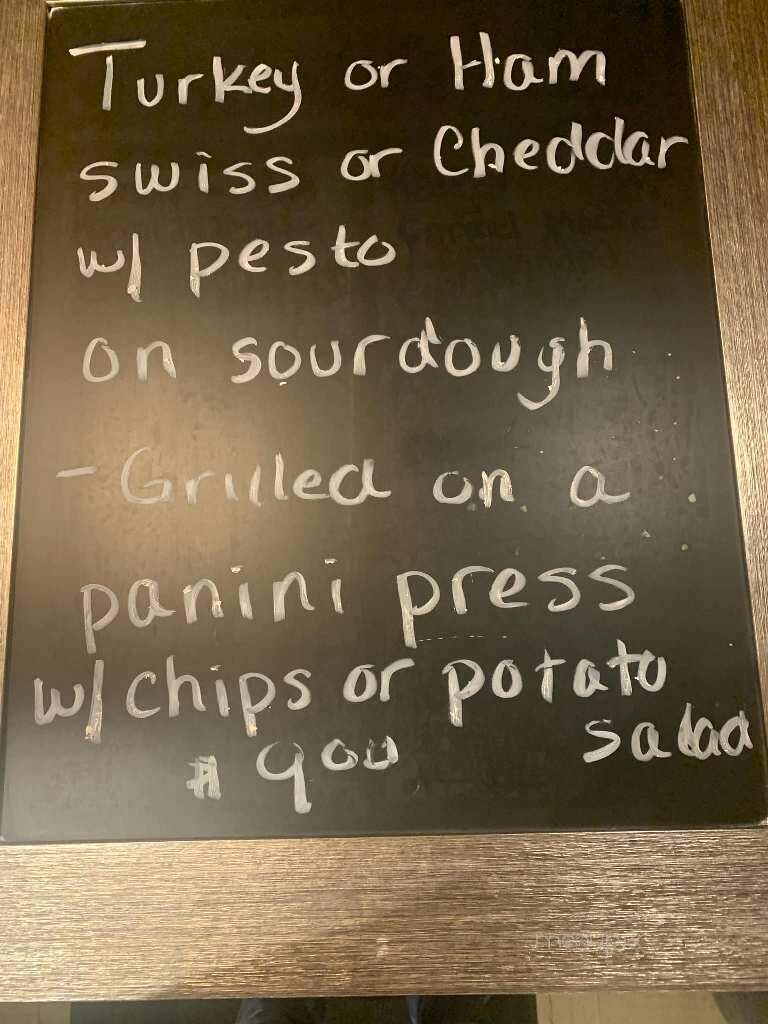 Turkey or Ham
swiss or Cheddar
w/ pesto
on sourdough
- Grilled on a
panini press
w/ chips or potato
salad
$ 900